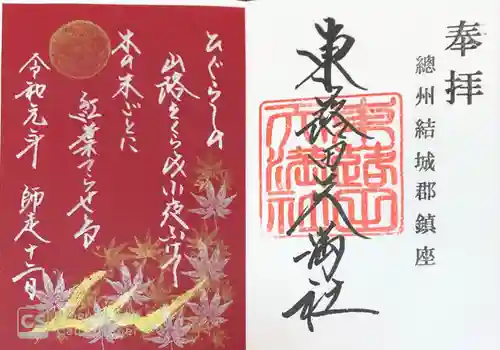 奉拝
總州結城郡鎮座
東蕗田天満社
東蕗田天満社
ひぐらしの
山路をくらみ小夜ふけて
木の末ごとに
紅葉てらせる
令和元年 師走十二日
CS